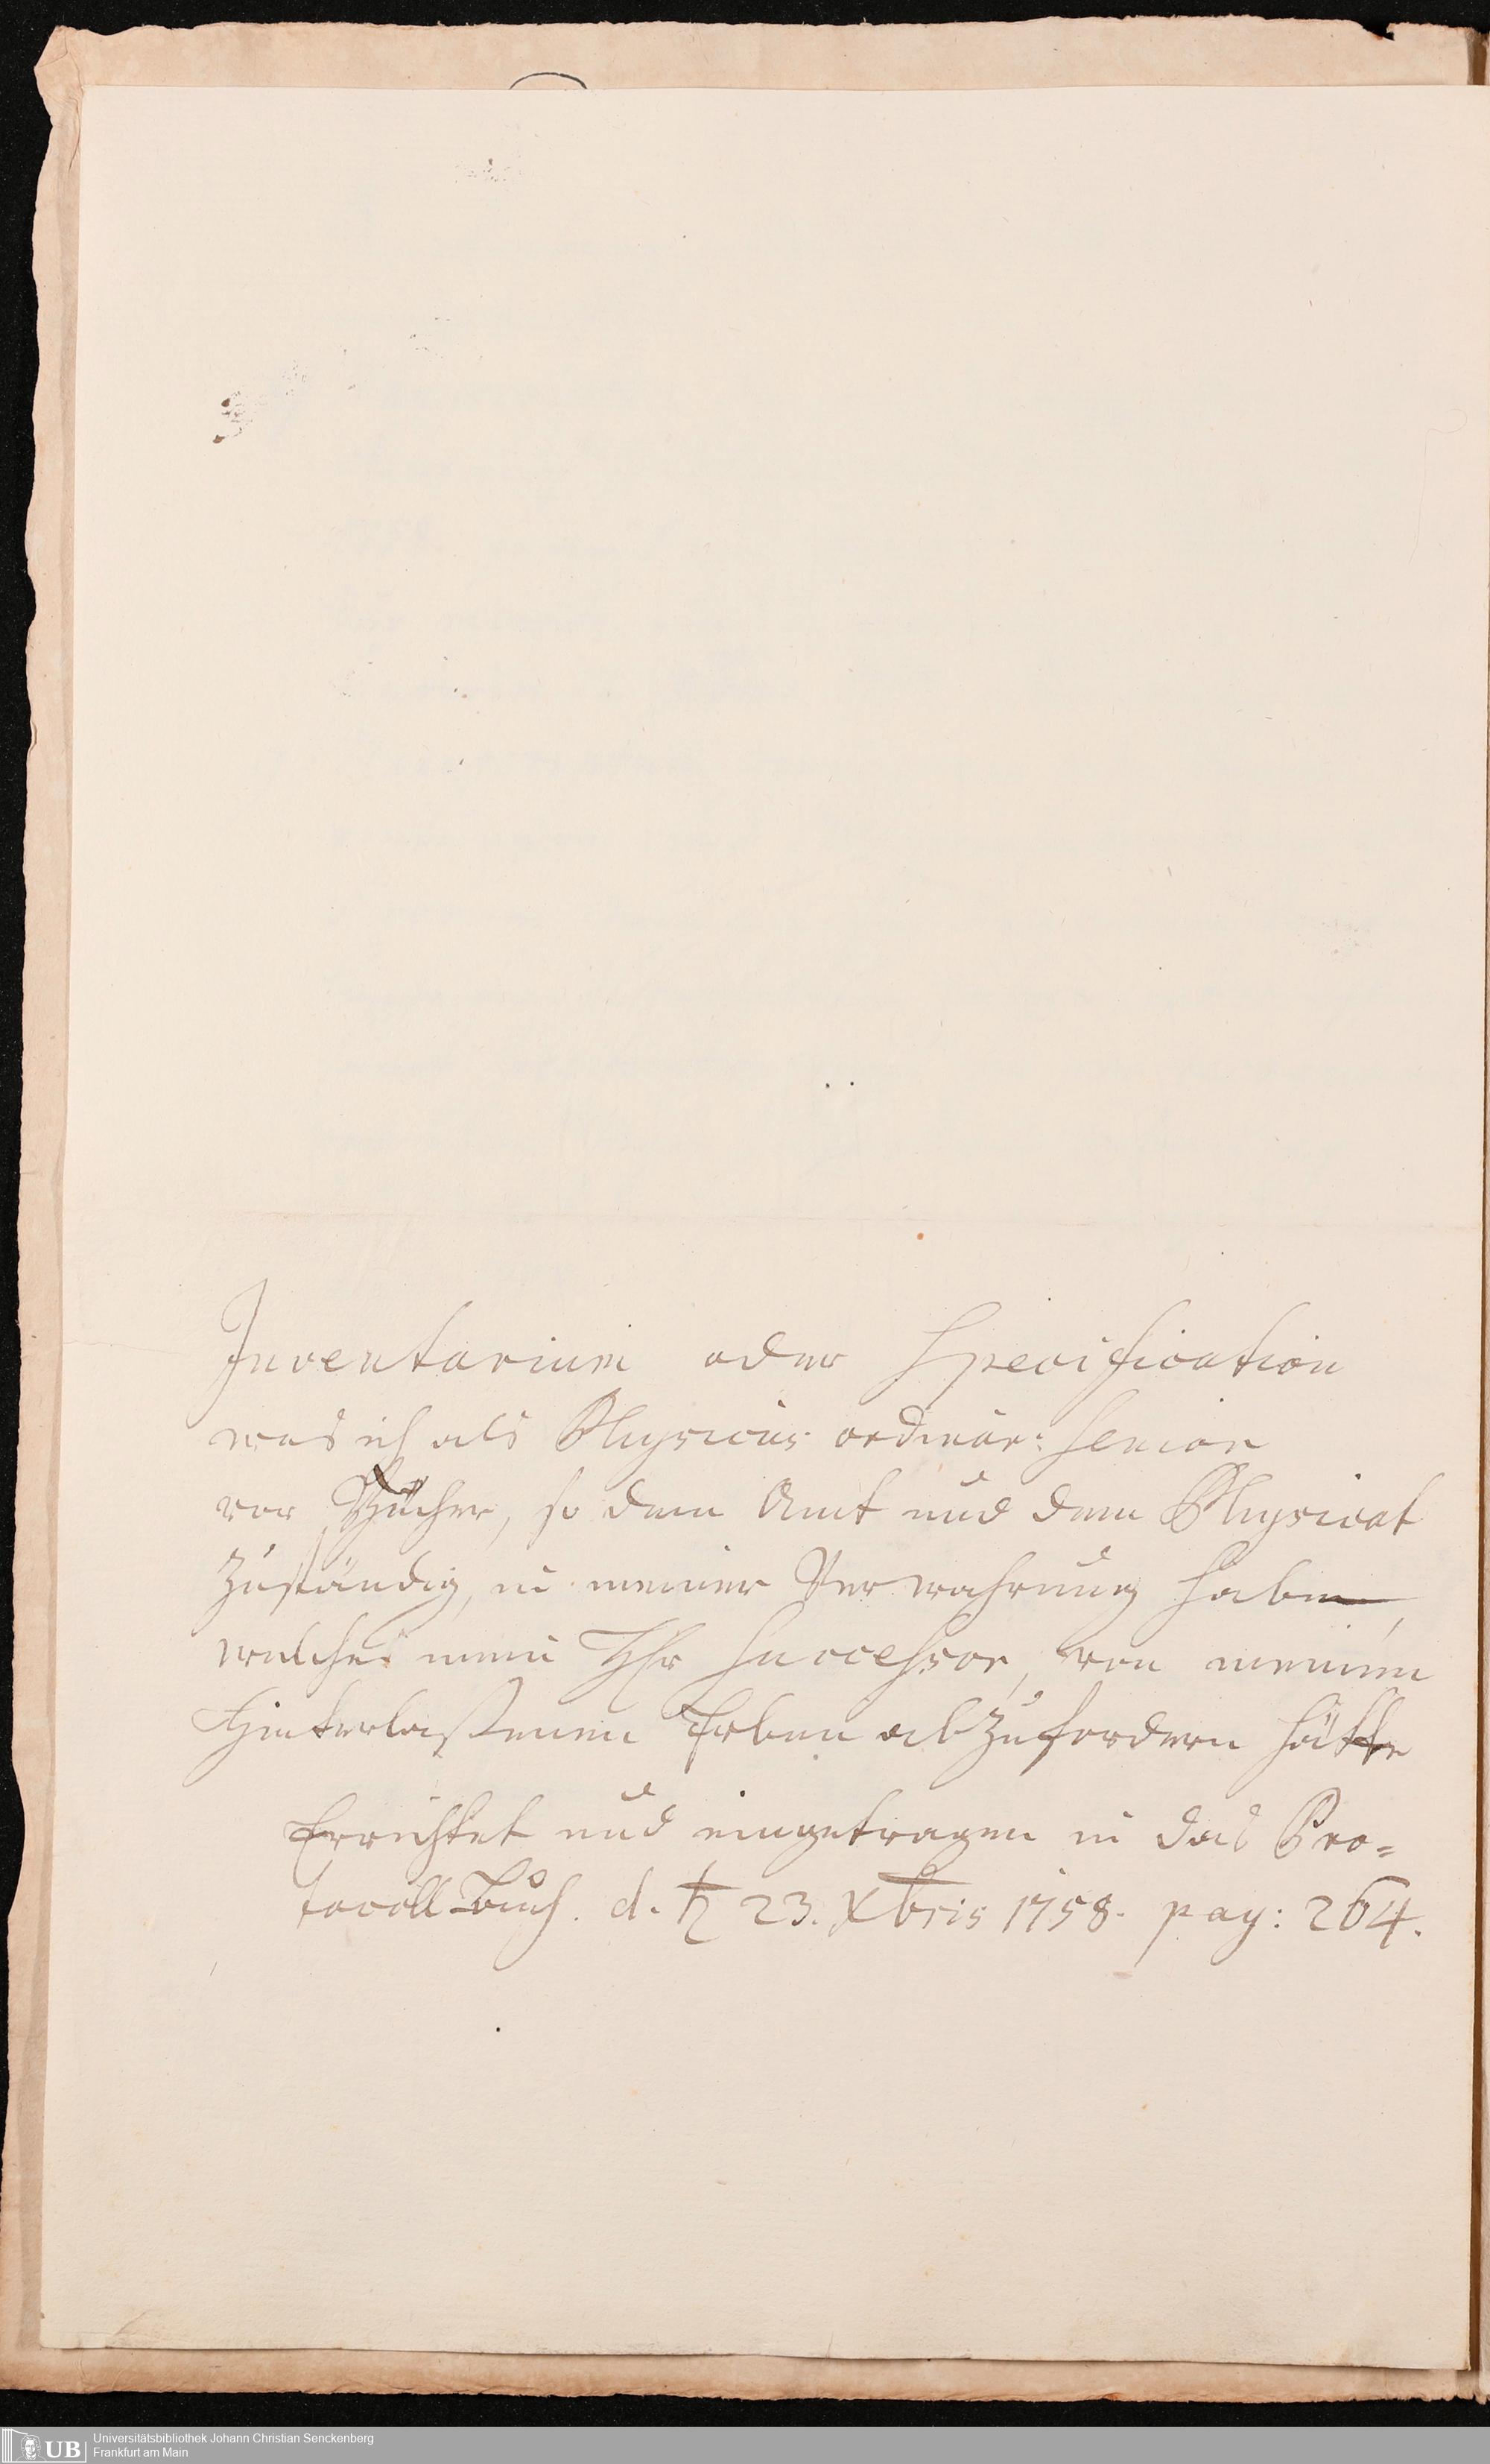 Inventarium oder Specification
was ich als Physicus ordinar: senior
vor Bücher, so dem Amt und dem Physicat
zuständig, in meiner Verwahrung habe,
welches mein Hhr Successor, von meinen
Hinterlaßenen Erben abzufordern hätte
Errichtet und eingetragen in das Pro=
tocoll-Buch. d. ♄ 23. Xbris 1758. pag: 264.
UB Universitätsbibliothek Johann Christian Senckenberg
Frankfurt am Main